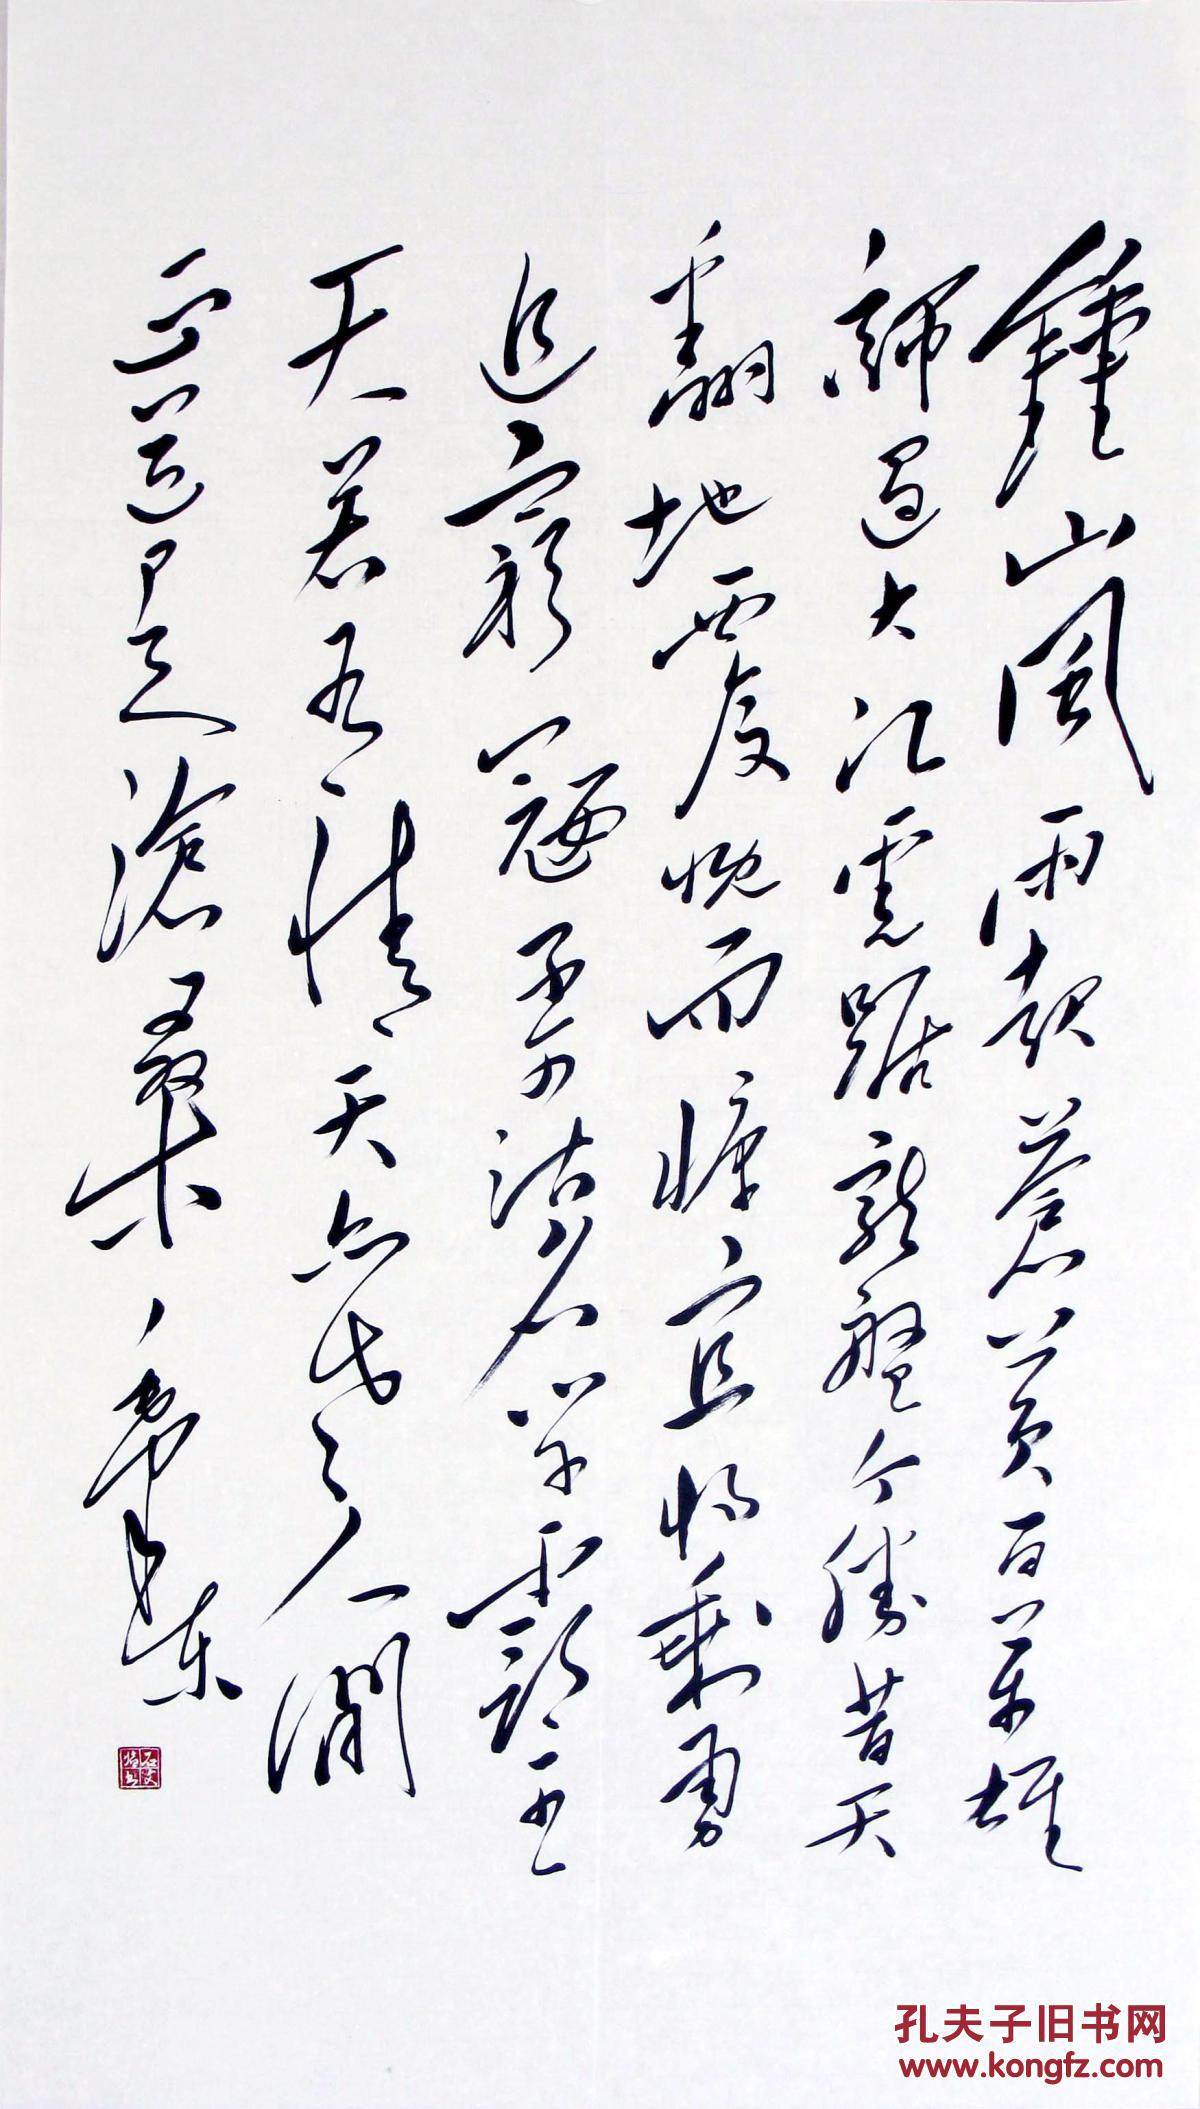 鍾山風雨起蒼黃百萬雄
師過大江虎踞龍盤今勝昔天
翻地覆慨而慷宜將剩勇
追窮寇不可沽名學霸王
天若有情天亦老人間
正道是滄桑 毛澤東
孔夫子旧书网
www.kongfz.com